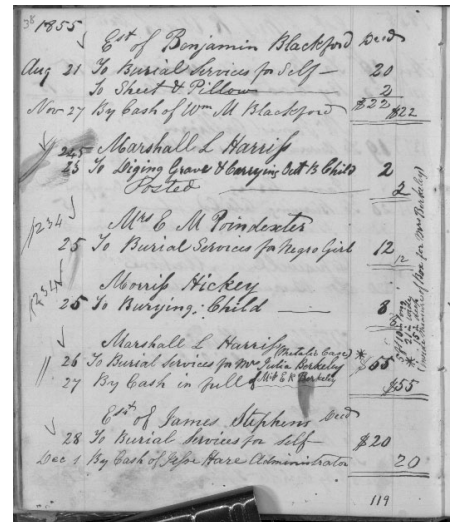 38
1855
Est of Benjamin Blackford Decd
Aug 21 To Burial Services for Self — 20
To Sheet & Pillow — 2
$22
Nov 27 By Cash of Wm M Blackford $22
Marshall L Harriss
23 To Diging Grave & Carrying Out B Child 2
Posted — 2
1234
Mrs E M Poindexter
25 To Burial Services for Negro Girl 12
12
1234
Morriss Hickey
25 To Burying : Child — 8
8
Marshall L Harriss
(Metalic Case) *
26 To Burial Services for Mrs Julia Berkeley $55
27 By Cash in full of Mr E R Berkeley $55
Est of James Stephens Decd
28 To Burial Services for Self — $20
Dec 1 By Cash of Jesse Hare Administrator 20
119